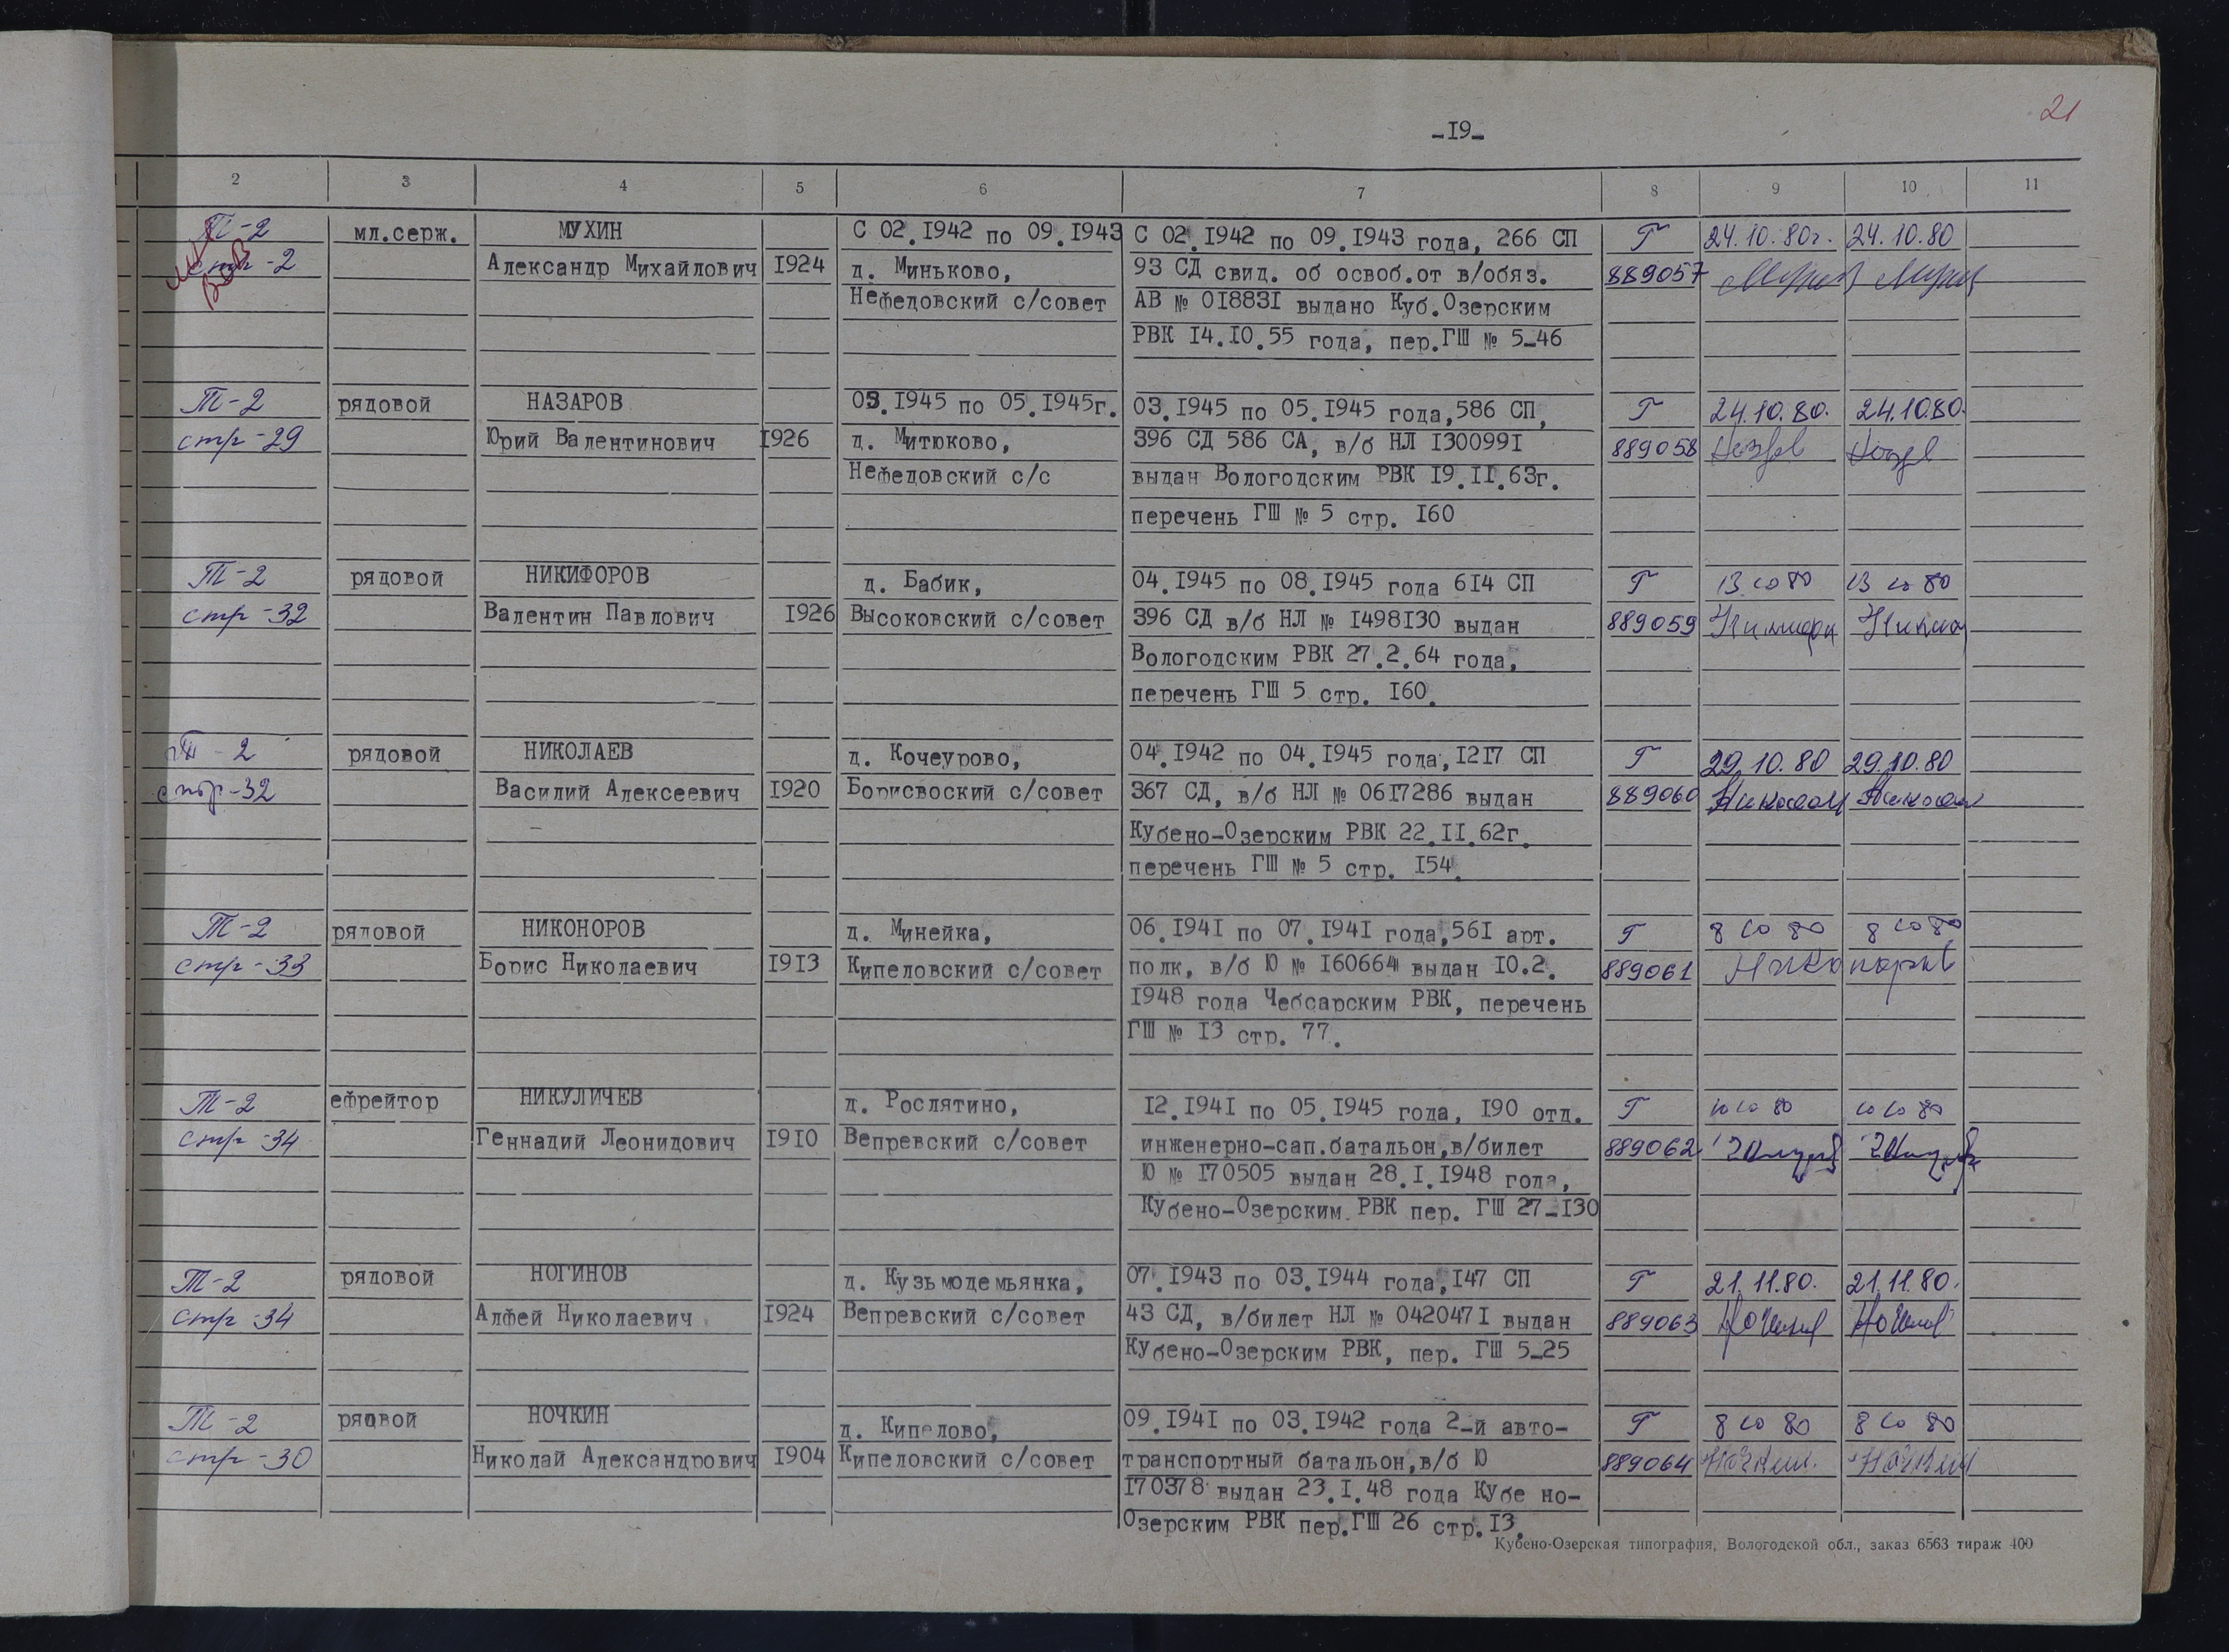 21
-19-
2 3 4 5 6 7 8 9 10 11
Т-2 мл.серж. МУХИН С 02.1942 по 09.1943 С 02.1942 по 09.1943 года, 266 СП Г 24.10.80г. 24.10.80
стр-2 Александр Михайлович 1924 д. Миньково, 93 СД свид. об освоб.от в/обяз. 889057
Нефедовский с/совет АВ № 018831 выдано Куб.Озерским
РВК 14.10.55 года, пер.ГШ № 5-46
Т-2 рядовой НАЗАРОВ 03.1945 по 05.1945г. 03.1945 по 05.1945 года,586 СП, Г 24.10.80. 24.10.80.
стр-29 Юрий Валентинович 1926 д. Митюково, 396 СД 586 СА, в/б НЛ 1300991 889058
Нефедовский с/с выдан Вологодским РВК 19.11.63г.
перечень ГШ № 5 стр. 160
Т-2 рядовой НИКИФОРОВ д. Бабик, 04.1945 по 08.1945 года 614 СП Г 13 10 80 13 10 80
стр-32 Валентин Павлович 1926 Высоковский с/совет 396 СД в/б НЛ № 1498130 выдан 889059
Вологодским РВК 27.2.64 года,
перечень ГШ 5 стр. 160.
Т-2 рядовой НИКОЛАЕВ д. Кочеурово, 04.1942 по 04.1945 года,1217 СП Г 29.10.80 29.10.80
стр-32 Василий Алексеевич 1920 Борисвоский с/совет 367 СД, в/б НЛ № 0617286 выдан 889060
Кубено-Озерским РВК 22.11.62г.
перечень ГШ № 5 стр. 154.
Т-2 рядовой НИКОНОРОВ д. Минейка, 06.1941 по 07.1941 года,561 арт. Г 8 10 80 8 10 80
стр-33 Борис Николаевич 1913 Кипеловский с/совет полк, в/б Ю № 160664 выдан 10.2. 889061
1948 года Чебсарским РВК, перечень
ГШ № 13 стр. 77.
Т-2 ефрейтор НИКУЛИЧЕВ д. Рослятино, 12.1941 по 05.1945 года, 190 отд. Г 10 10 80 10 10 80
стр-34 Геннадий Леонидович 1910 Вепревский с/совет инженерно-сап.батальон,в/билет 889062
Ю № 170505 выдан 28.1.1948 года,
Кубено-Озерским РВК пер. ГШ 27-130
Т-2 рядовой НОГИНОВ д. Кузьмодемьянка, 07.1943 по 03.1944 года,147 СП Г 21.11.80. 21.11.80.
стр-34 Алфей Николаевич 1924 Вепревский с/совет 43 СД, в/билет НЛ № 0420471 выдан 889063
Кубено-Озерским РВК, пер. ГШ 5-25
Т-2 рядовой НОЧКИН д. Кипелово, 09.1941 по 03.1942 года 2-й авто- Г 8 10 80 8 10 80
стр-30 Николай Александрович 1904 Кипеловский с/совет транспортный батальон,в/б Ю 889064
170378 выдан 23.1.48 года Кубено-
Озерским РВК пер.ГШ 26 стр.13.
Кубено-Озерская типография, Вологодской обл., заказ 6563 тираж 400